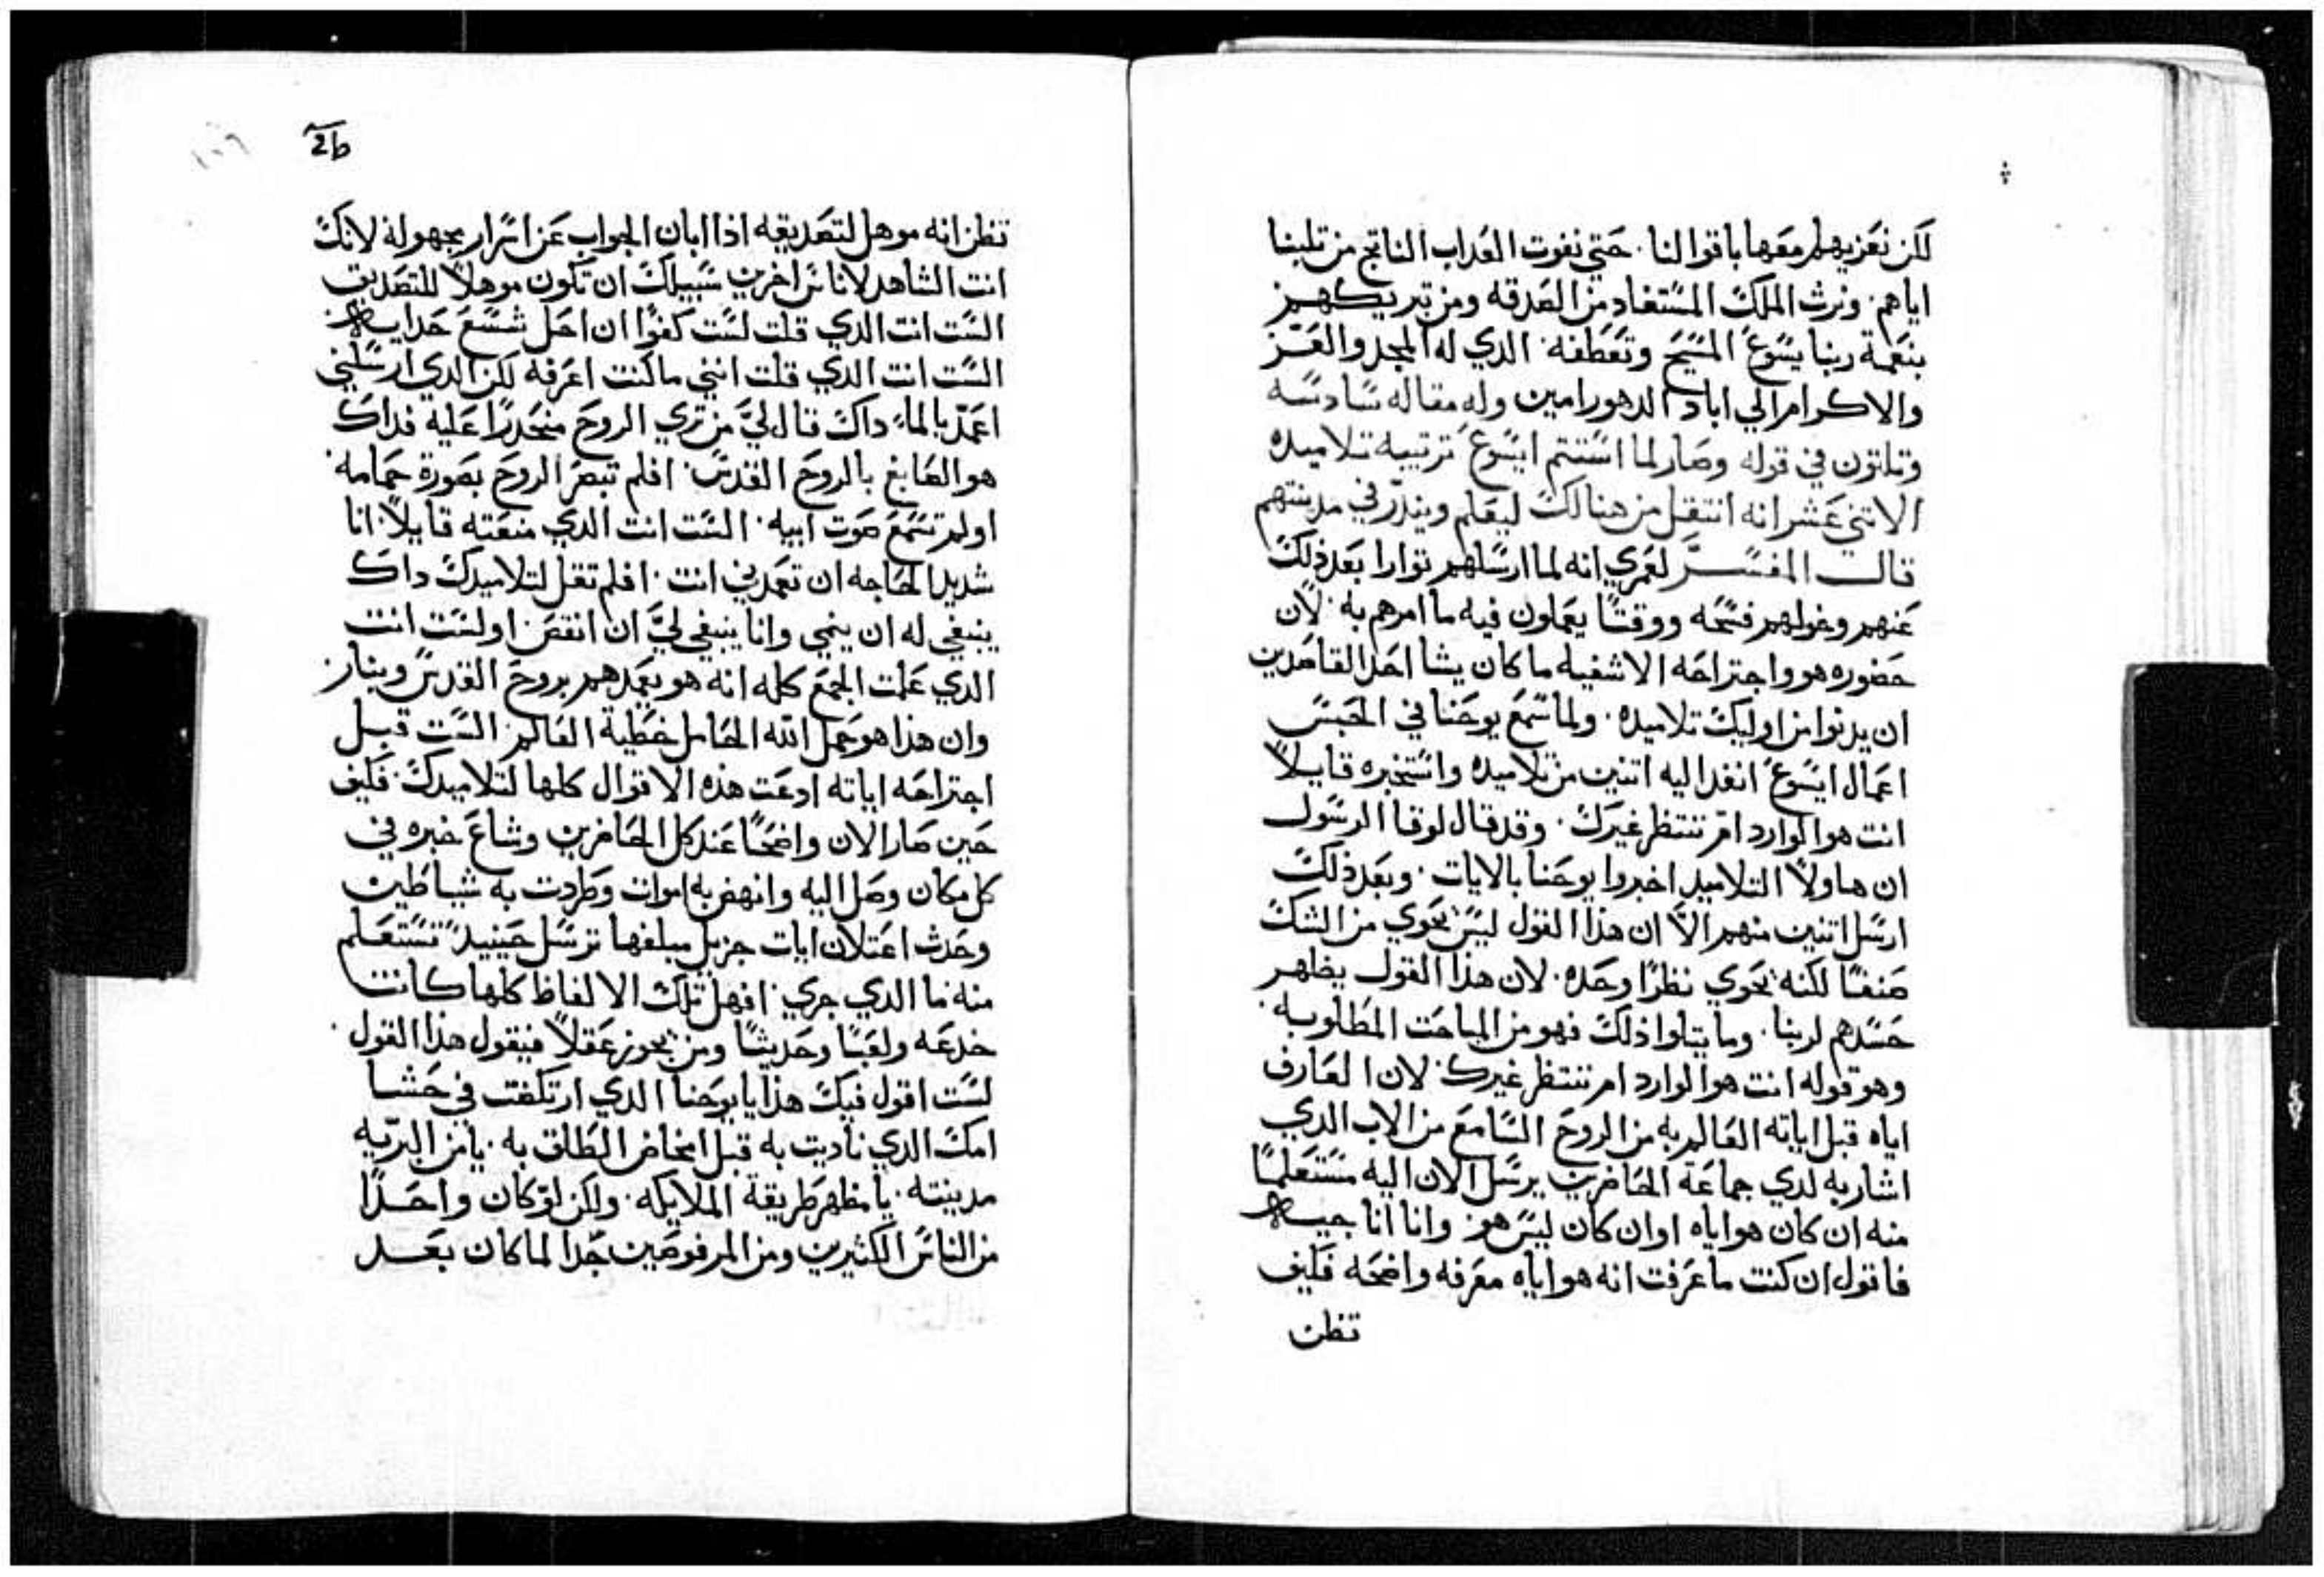 لكن نعزيهم معها باقوالنا. حتي نفوت العداب الناتج من تلبنا
اياهم. ونرث الملك المستفاد من الصدقه ومن تبريكهم
بنعمة ربنا يسوع المسيح وتعطفه. الدي له المجد والعز
والاكرام الي اباد الدهور امين وله مقاله سادسه
وتلتون في قوله وصار لما استتم ايسوع ترتيبه تلاميده
الاتني عشر انه انتقل من هنالك ليعلم ويندر في مدينتهم
قال المفسر لعمري انه لما ارسلهم توارا بعد ذلك
عنهم وخولهم فسحه ووقتا يعملون فيه ما امرهم به. لان
حضوره هو واجتراحه الاشفيه ما كان يشا احد القاصدين
ان يدنوا من اوليك تلاميده. ولما سمع يوحنا في الحبس
اعمال ايسوع انفد اليه اتنين من تلاميده واستخبره قايلا
انت هو الوارد ام ننتظر غيرك. وقد قال لوقا الرسول
ان هاولا التلاميد اخبروا يوحنا بالايات. وبعد ذلك
ارسل اتنين منهم الا ان هذا القول ليس يحوي من الشك
صنفا لكنه يحوي نظرا وحده. لان هذا القول يظهر
حسدهم لربنا. وما يتلوا ذلك فهو من المباحت المطلوبه.
وهو قوله انت هو الوارد ام ننتظر غيرك. لان العارف
اياه قبل اياته العالم به من الروح السامع من الاب الدي
اشار به لدي جماعة الحاضرين يرسل الان اليه مستعلما
منه ان كان هو اياه او ان كان ليس هو. وانا اناجيب
فاقول ان كنت ما عرفت انه هو اياه معرفه واضحه فكيف
تظن
2b
تظن انه موهل لتصديقه اذا ابان الجواب عن اسرار مجهوله لانك
انت الشاهد لاناس اخرين سبيلك ان تكون موهلا للتصديق
الست انت الدي قلت لست كفوا ان احل شسع حدايه
الست انت الدي قلت انني ما كنت اعرفه لكن الدي ارسلني
اعمد بالماء داك قال لي من تري الروح منحدرا عليه فداك
هو الصابغ بالروح القدس. افلم تبصر الروح بصورة حمامه.
اولم تسمع صوت ابيه. الست انت الدي منعته قايلا. انا
شديد الحاجه ان تعمدني انت. افلم تقل لتلاميدك داك
ينبغي له ان ينمي وانا ينبغي لي ان انقص. اولست انت
الدي علمت الجمع كله انه هو يعمدهم بروح القدس وبنار
وان هذا هو حمل الله الحامل خطية العالم. الست قبل
اجتراحه اياته ادعت هذه الاقوال كلها لتلاميدك. فكيف
حين صار الان واضحا عند كل الحاضرين وشاع خبره في
كل مكان وصل اليه وانهض به اموات وطردت به شياطين
وحدث اعتلان ايات جزيل مبلغها ترسل حينيد تستعلم
منه ما الدي جري. افهل تلك الالفاظ كلها كانت
خدعه ولعبا وحديثا ومن يحوز عقلا فيقول هذا القول.
لست اقول فيك هذا يا يوحنا الدي ارتكضت في حشا
امك الدي ناديت به قبل امخاض الطلق به. يا من البريه
مدينته. يا مظهر طريقة الملايكه. ولكن لو كان واحدا
من الناس الكثيرين ومن المرفوضين جدا لما كان بعد